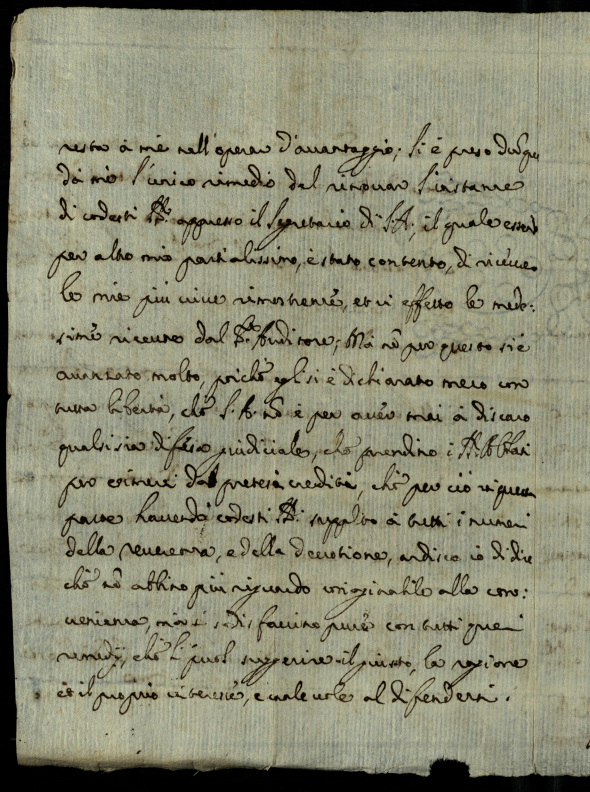 resta à me nell'operar d'avantaggio; si è preso dunque
da me l'unico rimedio del rinovar l'instanze
di codesti SS.ri appresso il Segretario di S.A.; il quale essendo
per altro mio partialissimo, è stato contento, di ricevere
le mie più vive rimostranze, et in effetto le mede:
sime ricevute dal Sr. Auditore; Mà nò per questo si è
avanzato molto, poiche egli si è dichiarato meco con
tutta libertà, che S.A. nò è per aver mai à discaro
qualsisia difesa giudiciale, che prendino i SS.ri Abbati
per esimersi dal preteso credito, che per ciò in questa
parte havendo codesti SS.ri supplito à tutti i numeri
della reverenza, e della devotione, ardisco io di dire
che nò abbino più riguardo originabile alla conv:
venienza, mà si sodisfaccino pure con tutti quei
remedij, che li puol suggerire il giusto, la ragione
et il proprio interesse, e valevole al difendersi.